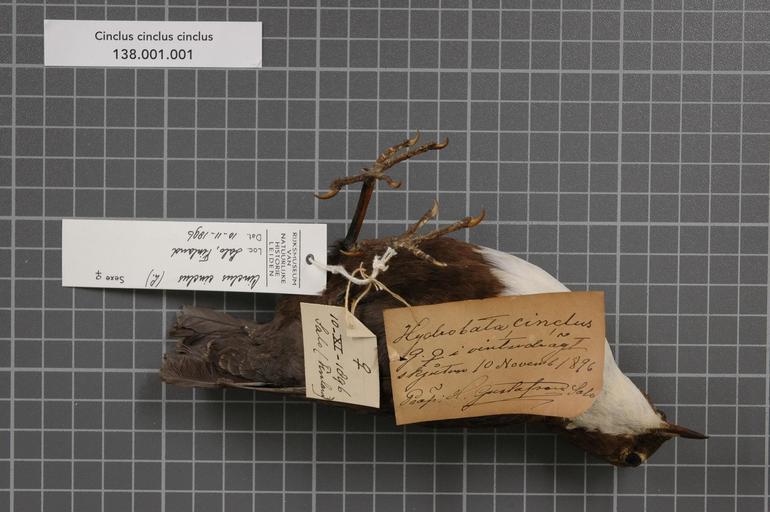 Cinclus cinclus cinclus
138.001.001
RIJKSMUSEUM
VAN
NATUURLIJKE
HISTORIE
LEIDEN
Cinclus cinclus (L.)
Sexe ♀
Loc. Salo, Finland
Dat. 10-11-1896
♀
10-XI-1896
Salo (Finland)
Hydrobata cinclus
♀ i vinterdrägt
10 Novemb. 1896
Gustafsson Salo